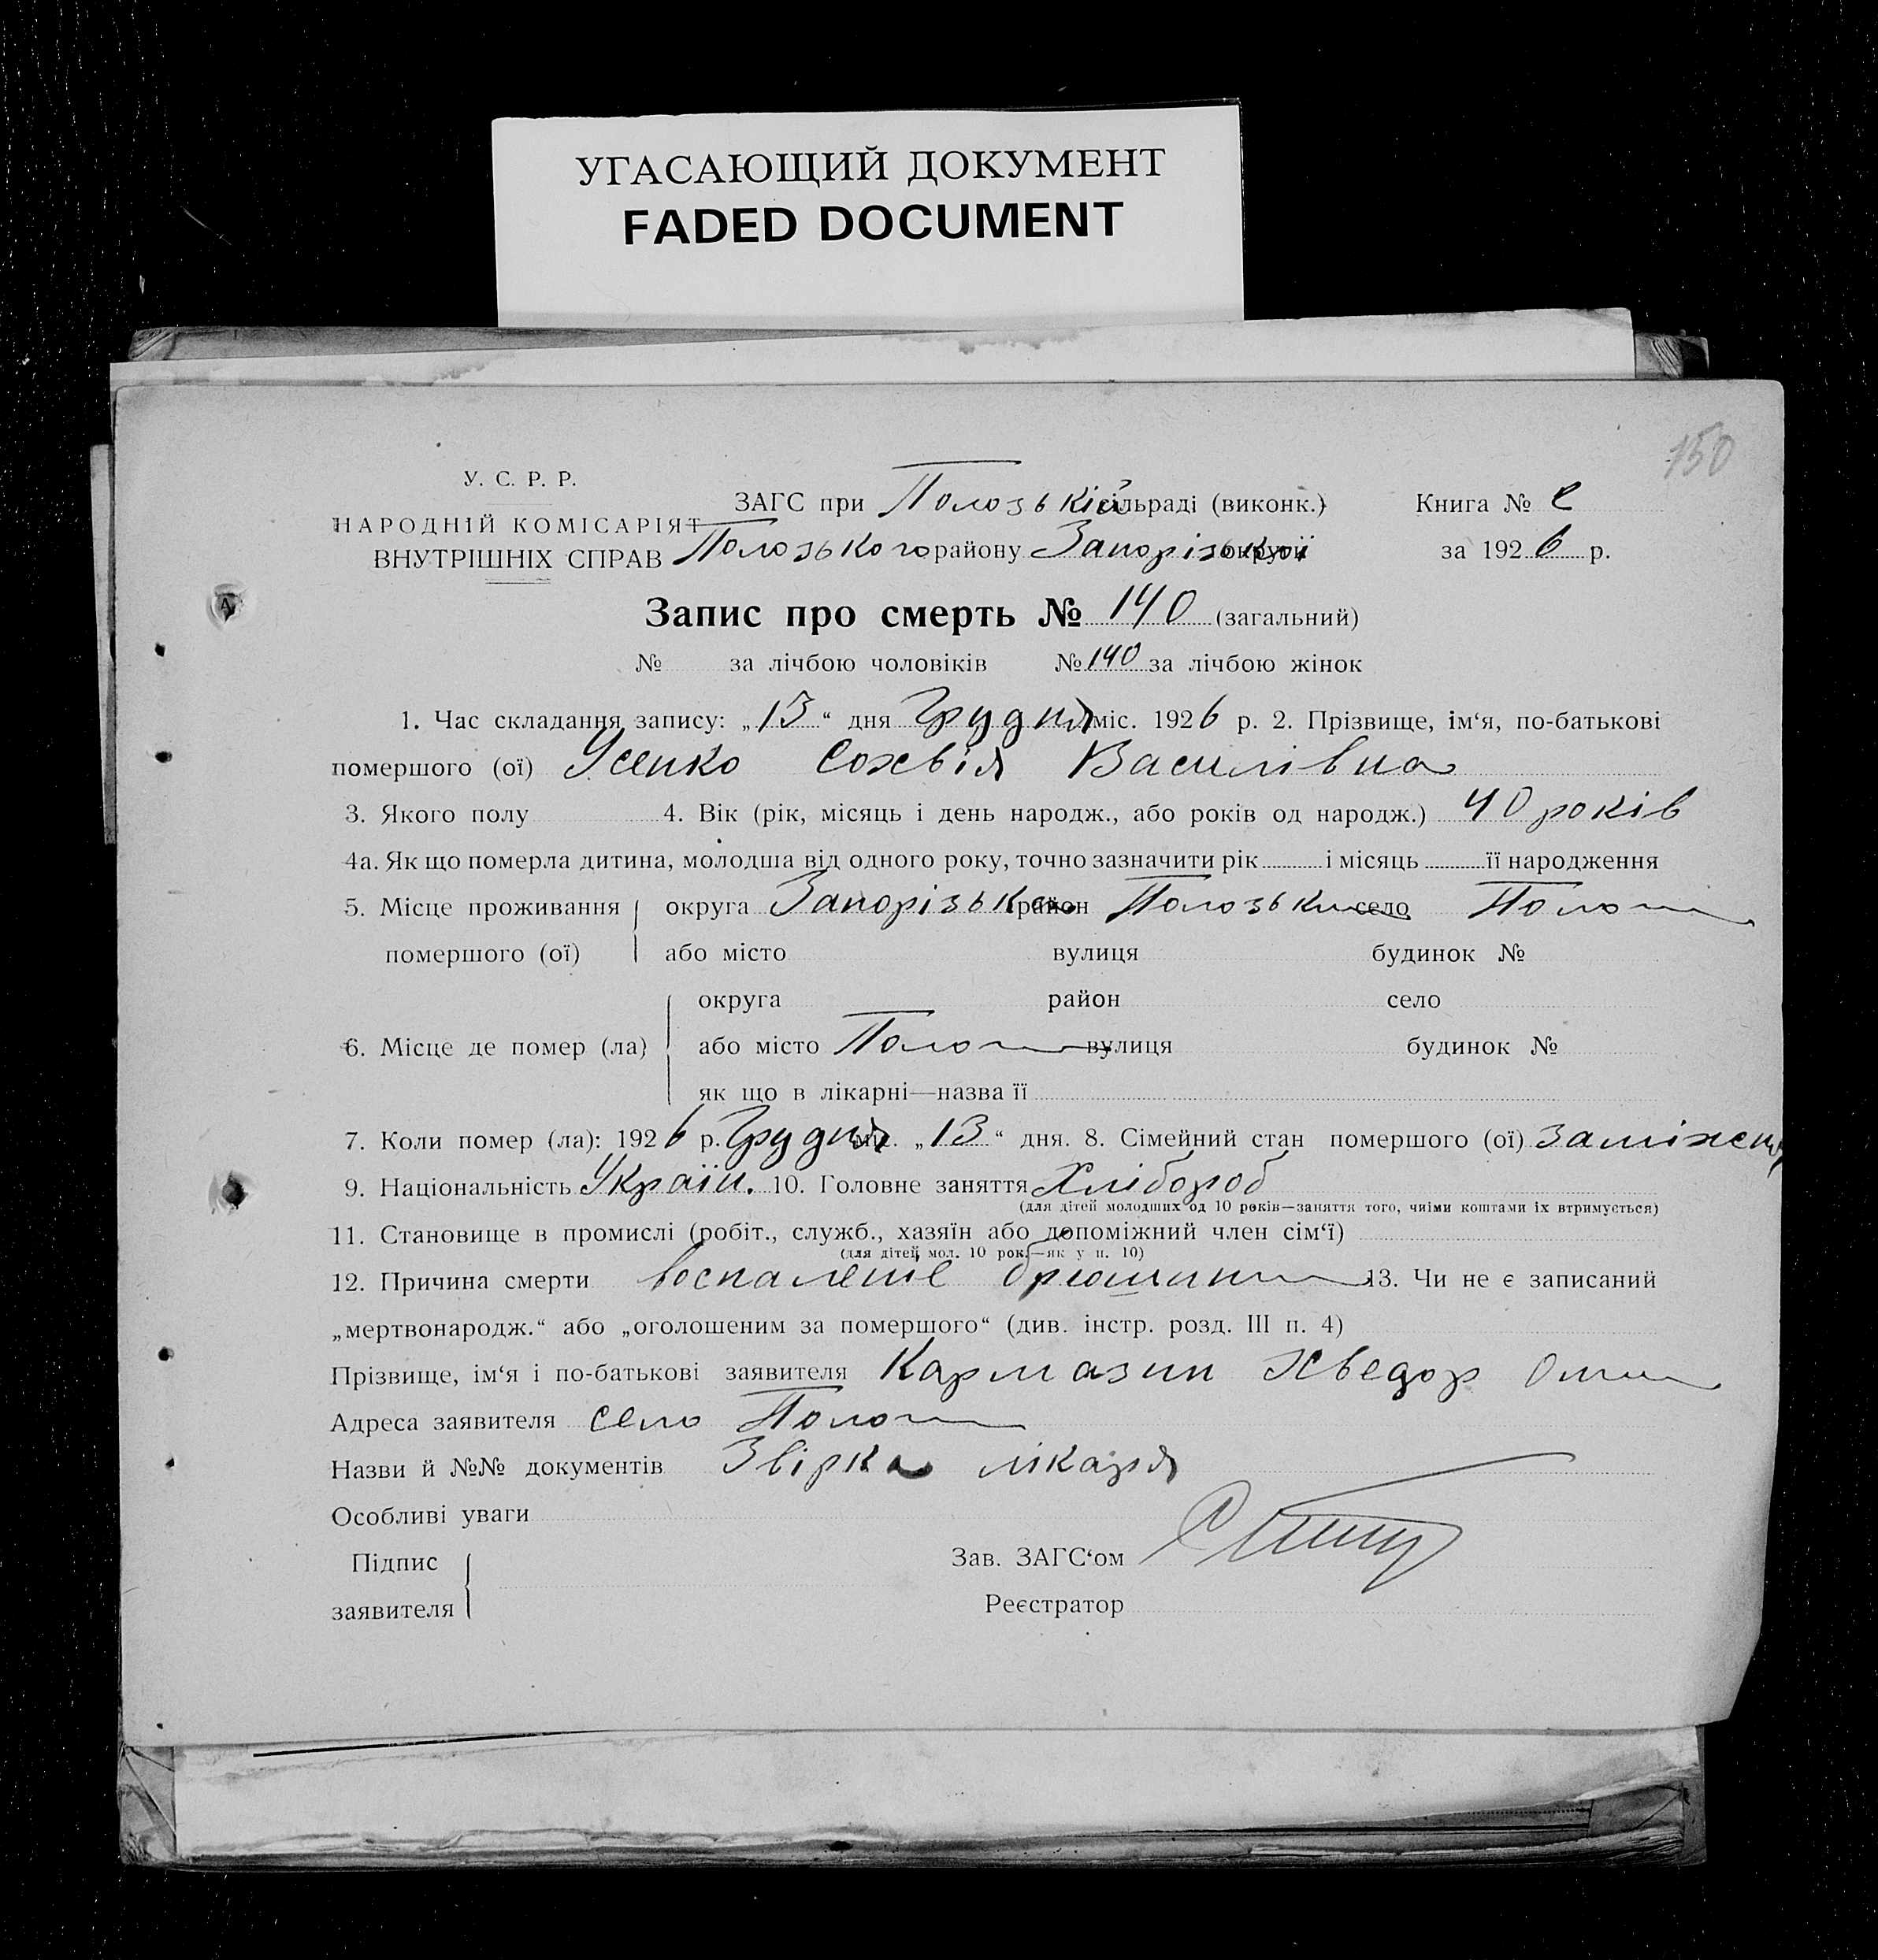 УГАСАЮЩИЙ ДОКУМЕНТ
FADED DOCUMENT
150
У. С. Р. Р.
НАРОДНІЙ КОМІСАРІЯТ
ВНУТРІШНІХ СПРАВ
ЗАГС при Полозькій сільраді (виконк.) Книга №
Полозького району Запорізької округи за 1926 р.
Запис про смерть № 140 (загальний)
№ за лічбою чоловіків № 140 за лічбою жінок
1. Час складання запису: „13“ дня Грудня міс. 1926 р. 2. Прізвище, ім‘я, по-батькові
помершого (ої) Усенко Сохвія Василівна
3. Якого полу 4. Вік (рік, місяць і день народж., або років од народж.) 40 років
4а. Як що померла дитина, молодша від одного року, точно зазначити рік і місяць її народження
5. Місце проживання помершого (ої) округа Запорізька район Полозький село Пологи
або місто вулиця будинок №
6. Місце де помер (ла) округа район село
або місто Пологи вулиця будинок №
як що в лікарні—назва її
7. Коли помер (ла): 1926 р. Грудня міс. „13“ дня. 8. Сімейний стан помершого (ої) заміжня
9. Національність Україн. 10. Головне заняття Хлібороб
(для дітей молодших од 10 років—заняття того, чиїми коштами їх втримується)
11. Становище в промислі (робіт., служб., хазяїн або допоміжний член сім‘ї)
(для дітей мол. 10 рок.—як у п. 10)
12. Причина смерти воспаление брюшины 13. Чи не є записаний
„мертвонародж.“ або „оголошеним за помершого“ (див. інстр. розд. III п. 4)
Прізвище, ім‘я і по-батькові заявителя Кармазин Хведор
Адреса заявителя село Пологи
Назви й №№ документів Звірка лікаря
Особливі уваги
Підпис заявителя
Зав. ЗАГС‘ом
Реєстратор